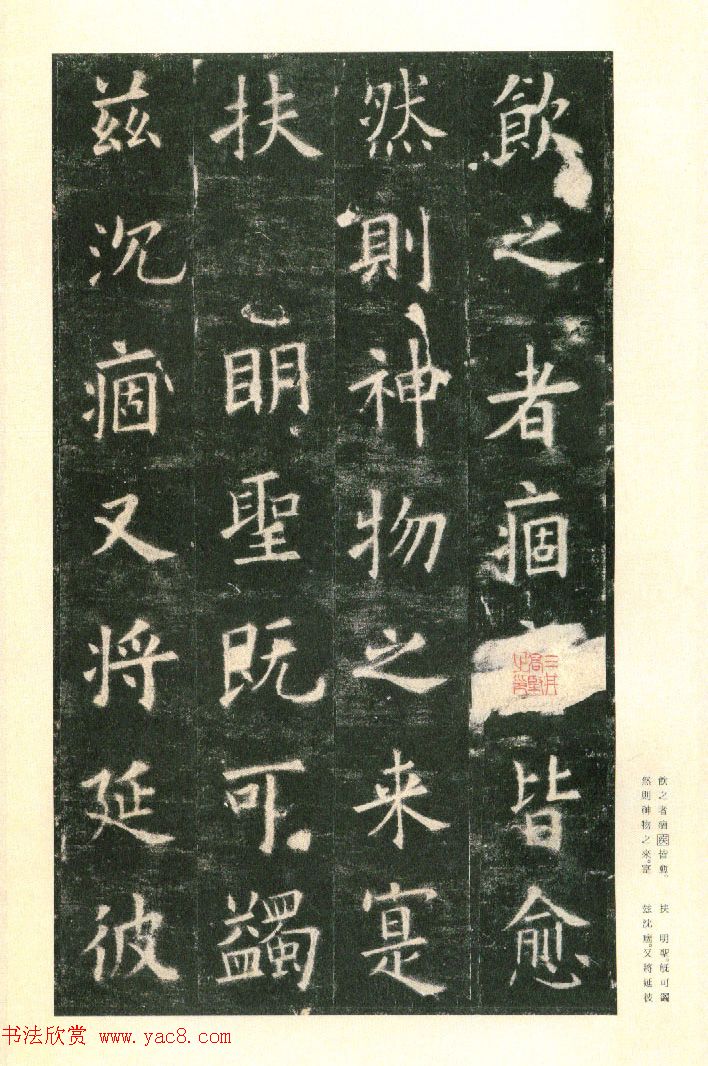 飲之者痼皆愈
然則神物之来寔
扶 眀聖既可蠲
兹沉痼又将延彼
飲之者痼疾皆愈。
然則神物之來。寔
扶 明聖。既可蠲
兹沈痼。又將延彼
书法欣赏 www.yac8.com